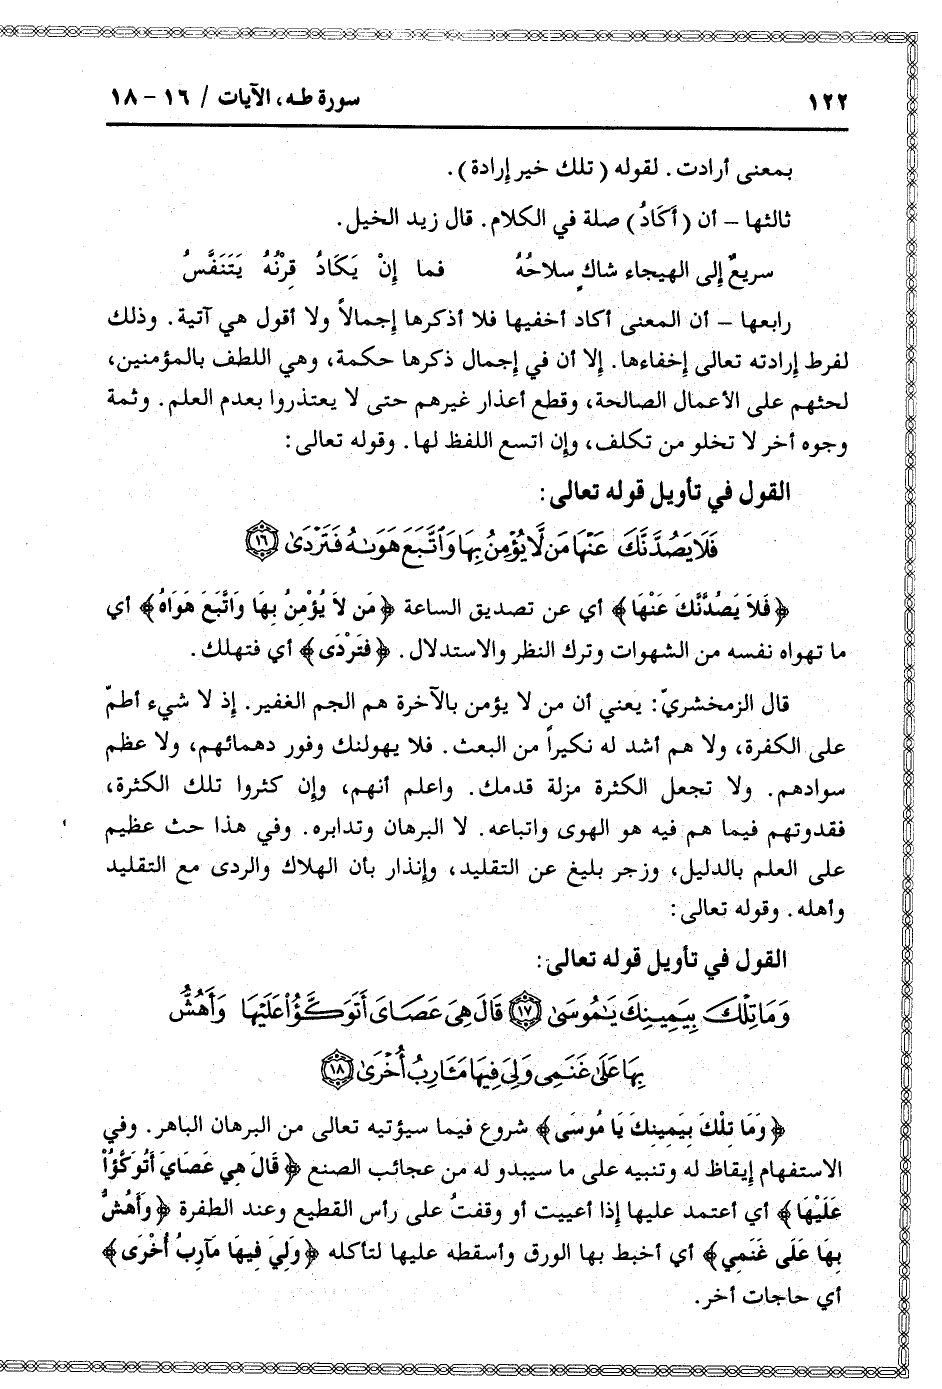 ١٢٢ سورة طه، الآيات / ١٦ - ١٨
بمعنى أرادت. لقوله (تلك خير إرادة).
ثالثها – أن (أَكَادُ) صلة في الكلام. قال زيد الخيل.
سريعٌ إلى الهيجاء شاكٍ سلاحُهُ فما إِنْ يَكَادُ قِرْنُهُ يَتَنَفَّسُ
رابعها – أن المعنى أكاد أخفيها فلا أذكرها إجمالاً ولا أقول هي آتية. وذلك
لفرط إرادته تعالى إخفاءها. إلا أن في إجمال ذكرها حكمة، وهي اللطف بالمؤمنين،
لحثهم على الأعمال الصالحة، وقطع أعذار غيرهم حتى لا يعتذروا بعدم العلم. وثمة
وجوه أخر لا تخلو من تكلف، وإن اتسع اللفظ لها. وقوله تعالى:
القول في تأويل قوله تعالى:
فَلَا يَصُدَّنَّكَ عَنْهَا مَن لَّا يُؤْمِنُ بِهَا وَٱتَّبَعَ هَوَىٰهُ فَتَرْدَىٰ ١٦
﴿فَلاَ يَصُدَّنَّكَ عَنْهَا﴾ أي عن تصديق الساعة ﴿مَن لاَ يُؤْمِنُ بِهَا وَاتَّبَعَ هَوَاهُ﴾ أي
ما تهواه نفسه من الشهوات وترك النظر والاستدلال. ﴿فَتَرْدَى﴾ أي فتهلك.
قال الزمخشريّ: يعني أن من لا يؤمن بالآخرة هم الجم الغفير. إذ لا شيء أطمّ
على الكفرة، ولا هم أشد له نكيراً من البعث. فلا يهولنك وفور دهمائهم، ولا عظم
سوادهم. ولا تجعل الكثرة مزلة قدمك. واعلم أنهم، وإن كثروا تلك الكثرة،
فقدوتهم فيما هم فيه هو الهوى واتباعه. لا البرهان وتدابره. وفي هذا حث عظيم
على العلم بالدليل، وزجر بليغ عن التقليد، وإنذار بأن الهلاك والردى مع التقليد
وأهله. وقوله تعالى:
القول في تأويل قوله تعالى:
وَمَا تِلْكَ بِيَمِينِكَ يَٰمُوسَىٰ ١٧ قَالَ هِىَ عَصَاىَ أَتَوَكَّؤُا۟ عَلَيْهَا وَأَهُشُّ
بِهَا عَلَىٰ غَنَمِى وَلِىَ فِيهَا مَـَٔارِبُ أُخْرَىٰ ١٨
﴿وَمَا تِلْكَ بِيَمِينِكَ يَا مُوسَى﴾ شروع فيما سيؤتيه تعالى من البرهان الباهر. وفي
الاستفهام إيقاظ له وتنبيه على ما سيبدو له من عجائب الصنع ﴿قَالَ هِي عَصَايَ أَتَوَكَّؤُاْ
عَلَيْهَا﴾ أي أعتمد عليها إذا أعييت أو وقفتُ على رأس القطيع وعند الطفرة ﴿وَأَهُشُّ
بِهَا عَلَى غَنَمِي﴾ أي أخبط بها الورق وأسقطه عليها لتأكله ﴿وَلِيَ فِيهَا مَآرِبُ أُخْرَى﴾
أي حاجات أخر.